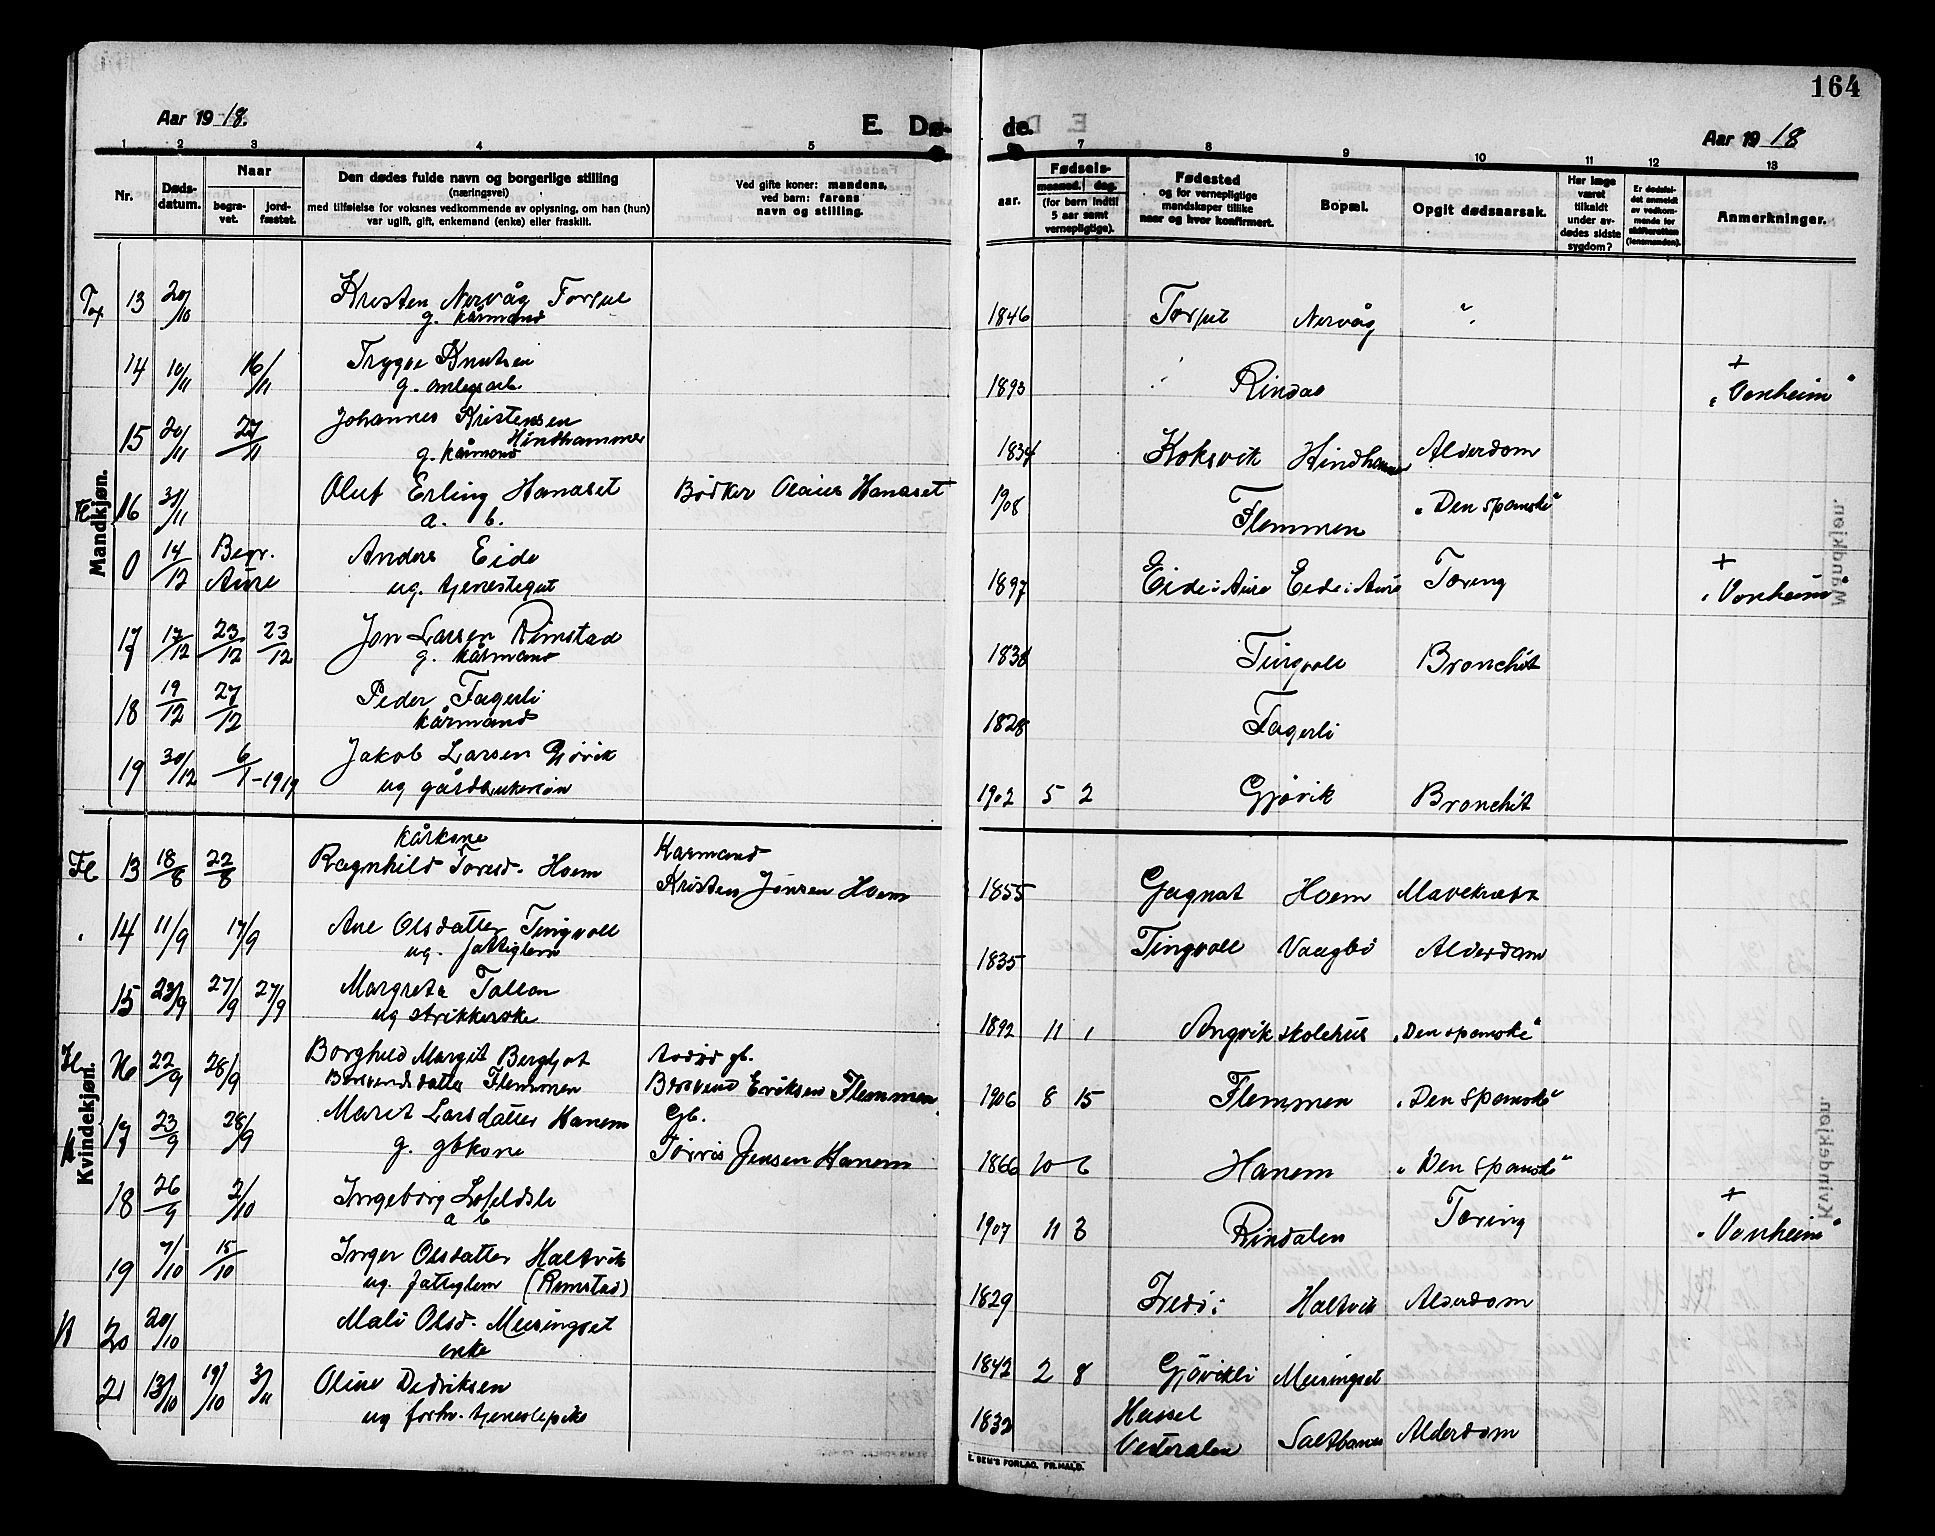 164
Aar 1918.
E. Dø- de.
Aar 1918
1 2 3 4 5 7 8 9 10 11 12 13
Nr.
Døds-
datum.
Naar
begra-
vet.
jord-
fæstet.
Den dødes fulde navn og borgerlige stilling
(næringsvei)
med tilføielse for voksnes vedkommende av oplysning, om han (hun)
var ugift, gift, enkemand (enke) eller fraskilt.
Ved gifte koner: mandens,
ved barn: farens
navn og stilling.
aar.
Fødsels-
maaned. dag.
(for børn indtil
5 aar samt
vernepligtige).
Fødested
og for vernepligtige
mandskaper tillike
naar og hvor konfirmert.
Bopæl.
Opgit dødsaarsak.
Har læge
været
tilkaldt
under av-
dødes sidste
sygdom?
Er dødsfal-
det anmeldt
av vedkom-
mende for
skifteretten
(lensmanden).
Anmerkninger.
Mandkjøn.
13 20/10 Kristen Nervåg Torjul 1846 Torjul Nervåg "
g. kårmand
14 10/11 16/11 Trygve Knutsen 1893 Rindas + "Vonheim"
g. anlegsarb
15 20/11 27/11 Johannes Kristensen
Hindhammer 1834 Koksvik Hindhammer Alderdom
g. kårmand
Fl 16 30/11 Oluf Erling Hanaset Bødker Olaus Hanaset 1908 Flemmen "Den spanske"
a. b.
0 14/12 Begr. Aure Anders Eide 1897 Eide i Aure Eide i Aure Tæring + "Vonheim"
ug. tjenestegut
17 17/12 23/12 23/12 Jon Larsen Rimstad 1838 Tingvoll Bronchit
g. kårmand
18 19/12 27/12 Peder Fagerli 1828 Fagerli
kårmand
19 30/12 6/1-1919 Jakob Larsen Gjøvik 1902 5 2 Gjøvik Bronchit
ug gårdbrukersøn
Kvindekjøn.
kårkone
Fl 13 18/8 22/8 Ragnhild Toresd. Hoem Kårmand
Kristen Jonsen Hoem 1855 Gagnat Hoem Mavekræft
14 11/9 17/9 Ane Olsdatter Tingvoll 1835 Tingvoll Vaagbø Alderdom
ug. fattiglem
15 23/9 27/9 27/9 Margreta Tallan 1892 11 1 Angvik skolehus "Den spanske"
ug strikkerske
16 22/9 28/9 Borghild Margit Bergljot
Bersvendsdatter Flemmen
Bersvend Eriksen Flemmen 1906 8 15 Flemmen "Den spanske"
17 23/9 28/9 Marit Larsdatter Hanem Gb.
g. gbkone Tørris Jensen Hanem 1866 10 6 Hanem "Den spanske"
18 26/9 2/10 Ingeborg Lofeldsli 1907 11 3 Rindalen Tæring + "Vonheim"
a b
19 7/10 15/10 Inger Olsdatter Haltvik 1829 Fredø: Haltvik Alderdom
ug. fattiglem (Rimstad)
20 20/10 Mali Olsd. Meisingset 1842 2 8 Gjøvikli Meisingset
enke
21 13/10 19/10 3/11 Oline Dedriksen 1832 Hassel
Vesteralen Saltbanes Alderdom
ug forhv. tjenestepike
E. SEM'S FORLAG, FR.HALD.